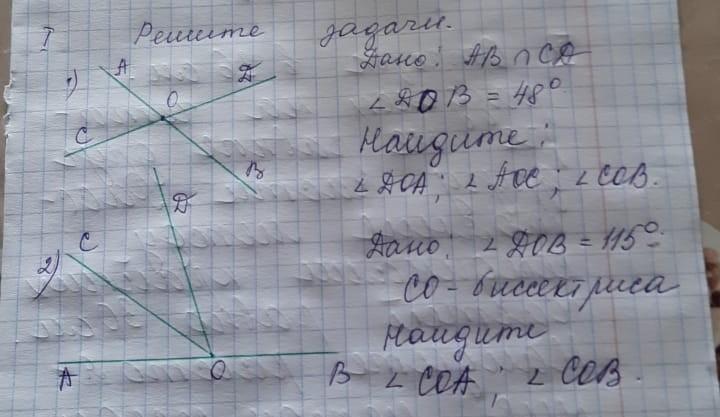 I Решите задачи.
1)
A
D
O
C
B
Дано: AB ∩ CD
∠DOB = 48°
Найдите:
∠DOA; ∠AOC; ∠COB.
2)
C
D
A
O
B
Дано: ∠DOB = 115°.
CO - биссектриса
Найдите
∠COA; ∠COB.